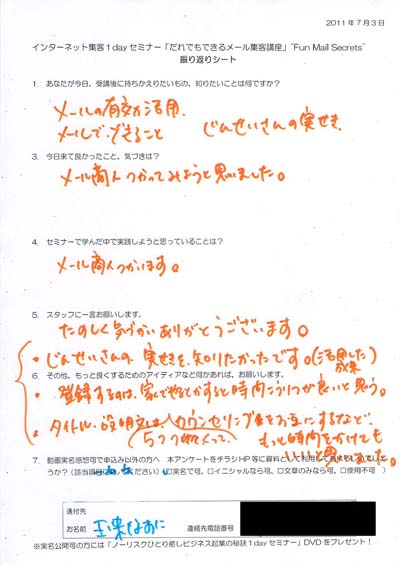 2011年7月3日
インターネット集客1dayセミナー「だれでもできるメール集客講座」"Fun Mail Secrets"
振り返りシート
1. あなたが今日、受講後に持ちかえりたいもの、知りたいことは何ですか?
メールの有効活用
メールで、できること じんせいさんの実せき
3. 今日来て良かったこと、気づきは?
メール商人つかってみようと思いました。
4. セミナーで学んだ中で実践しようと思っていることは?
メール商人つかいます。
5. スタッフに一言お願いします。
たのしく気づかいありがとうございます。
・じんせいさんの、実せきを知りたかったです。(活用した成果)
6. その他、もっと良くするためのアイディアなど何かあれば、お願いします。
・登録するのは、家でやるとかすると時間こうりつが良いと思う。
・タイトル・説明文は人カウンセリングをお互にするなどで、
もっと時間をかけても
いいと思いました。
7. 動画実名感想可で申込み以外の方へ 本アンケートをチラシHP等に資料として利用して
うか?(該当 ください) □実名で可、□イニシャルなら可、□文章のみなら可、□使用不可 )
送付先
お名前 なおに 連絡先電話番号
※実名公開可の方には「ノーリスクひとり癒しビジネス起業の秘訣1dayセミナー」DVDをプレゼント!